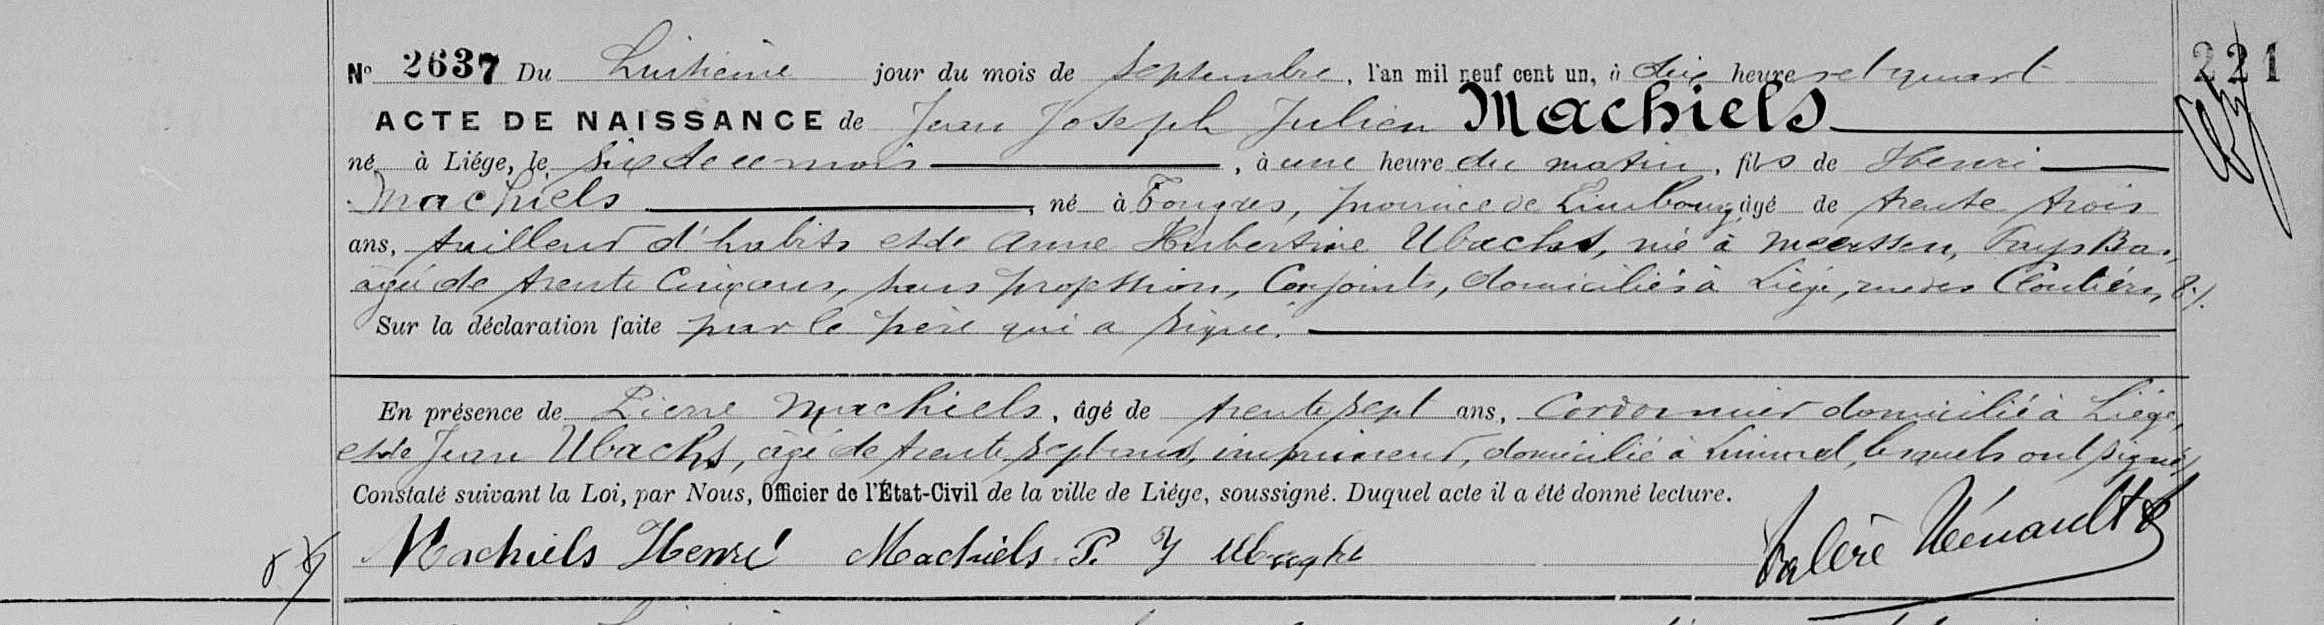 N° 2637 Du huitième jour du mois de Septembre, l'an mil neuf cent un, à dix heures et quart 221
ACTE DE NAISSANCE de Jean Joseph Julien Machiels
né à Liége, le six de ce mois, à une heure du matin, fils de Henri
Machiels, né à Tongres, province de Limbourg, âgé de trente trois
ans, tailleur d'habits et de Anne Hubertine Ubachs, née à Meerssen, Pays Bas,
âgée de trente cinq ans, sans profession, Conjoints, domiciliés à Liége, rue des Cloutiers,
Sur la déclaration faite par le père qui a signé.
En présence de Pierre Machiels, âgé de trente sept ans, Cordonnier domicilié à Liége,
et de Jean Ubachs, âgé de trente sept ans, imprimeur, domicilié à, lesquels ont signé
Constaté suivant la Loi, par Nous, Officier de l'État-Civil de la ville de Liége, soussigné. Duquel acte il a été donné lecture.
Machiels Henri Machiels P. J Ubaghs Valère Hénault